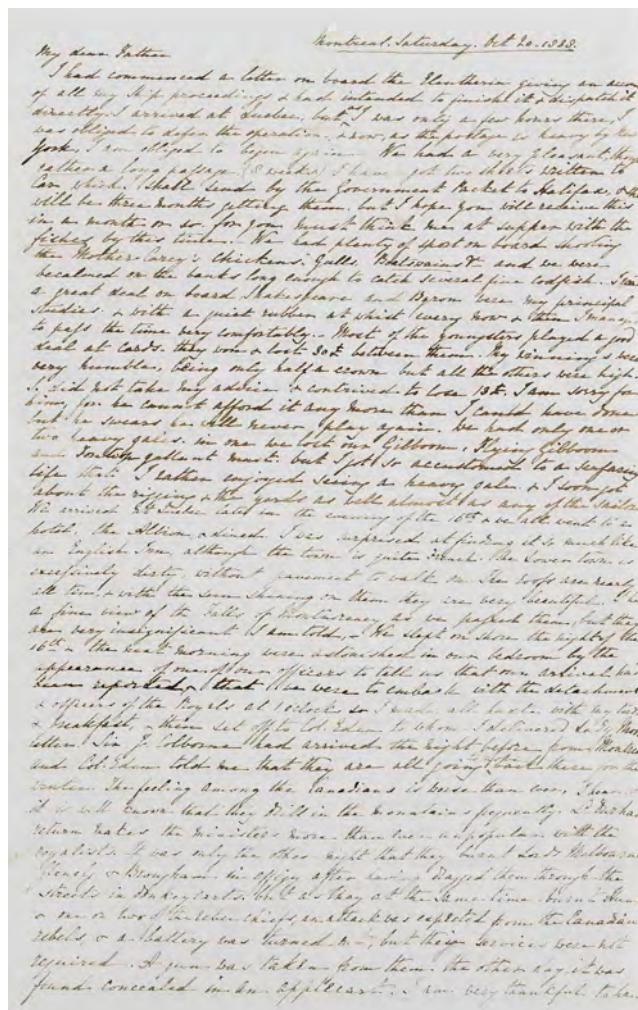 Montreal. Saturday. Oct 20. 1838.
My dear Father
I had commenced a letter on board the Eleutheria giving an
of all my Ship proceedings & had intended to finish it & dispatch it
directly I arrived at Quebec, but as I was only a few hours there, I
was obliged to defer the operation. & now, as the postage is heavy by New
York, I am obliged to begin again. We had a very pleasant, tho'
rather a long passage (8 weeks) I have got two sheets written to
which I shall send by the Government Packet to Halifax, &
will be three months getting them. but I hope you will receive this
in a month or so. for you must think me at supper with the
fishes by this time. We had plenty of sport on board shooting
the Mother Carey's Chickens. Gulls, Boatswains & and we were
becalmed on the banks long enough to catch several fine codfish. I
a great deal on board Shakespeare and Byron were my principal
studies. & with a quiet rubber at whist every now & then I
to pass the time very comfortably. Most of the youngsters played a good
deal at cards. they won & lost 30£ between them. My winnings were
very humble, being only half a crown but all the others were high.
S. did not take my advice & contrived to lose 13£. I am sorry for
him, for he cannot afford it any more than I could have done
but he swears he will never play again. We had only one or
two heavy gales. in one we lost our Gibboom, Flying Gibboom
and gallant mast. but I got so accustomed to a seafaring
life that I rather enjoyed seeing a heavy gale. & I soon got
about the rigging & the yards as well almost as any of the sailors
We arrived at Quebec late in the evening of the 16th & we all went to an
hotel, the Albion, & dined. I was surprised at finding it so much like
an English Inn, although the town is quite French. The Lower town is
excessively dirty, without pavement to walk on. The roofs are nearly
all tin. & with the sun shining on them they are very beautiful.
a fine view of the Falls of Montmorency as we passed them, but they
are very insignificant I am told, - We slept on shore the night of the
16th & the next morning were astonished in our bedroom by the
appearance of one of our officers to tell us that our arrival had
been reported & that we were to embark with the detachment
& officers of the Royals at 1 o'clock so I made all haste with my
& breakfast, & then set off to Col. Eden to whom I delivered
letter. Sir J. Colborne had arrived the night before from Montreal
and Col. Eden told me that they are all going back there for the
winter. The feeling among the Canadians is worse than ever, I hear.
it is well known that they drill in the mountains frequently. Ld Durham's
return makes the ministers more than ever unpopular with the
royalists. It was only the other night that they burnt Lords Melbourne
Glenelg & Brougham in effigy after having dragged them through the
streets in donkey carts. but as they at the same time burnt
& one or two of the rebel chiefs, an attack was expected from the Canadian
rebels, & a battery was turned out, but their services were not
required. A gun was taken from them the other day, it was
found concealed in an apple cart. I am very thankful to